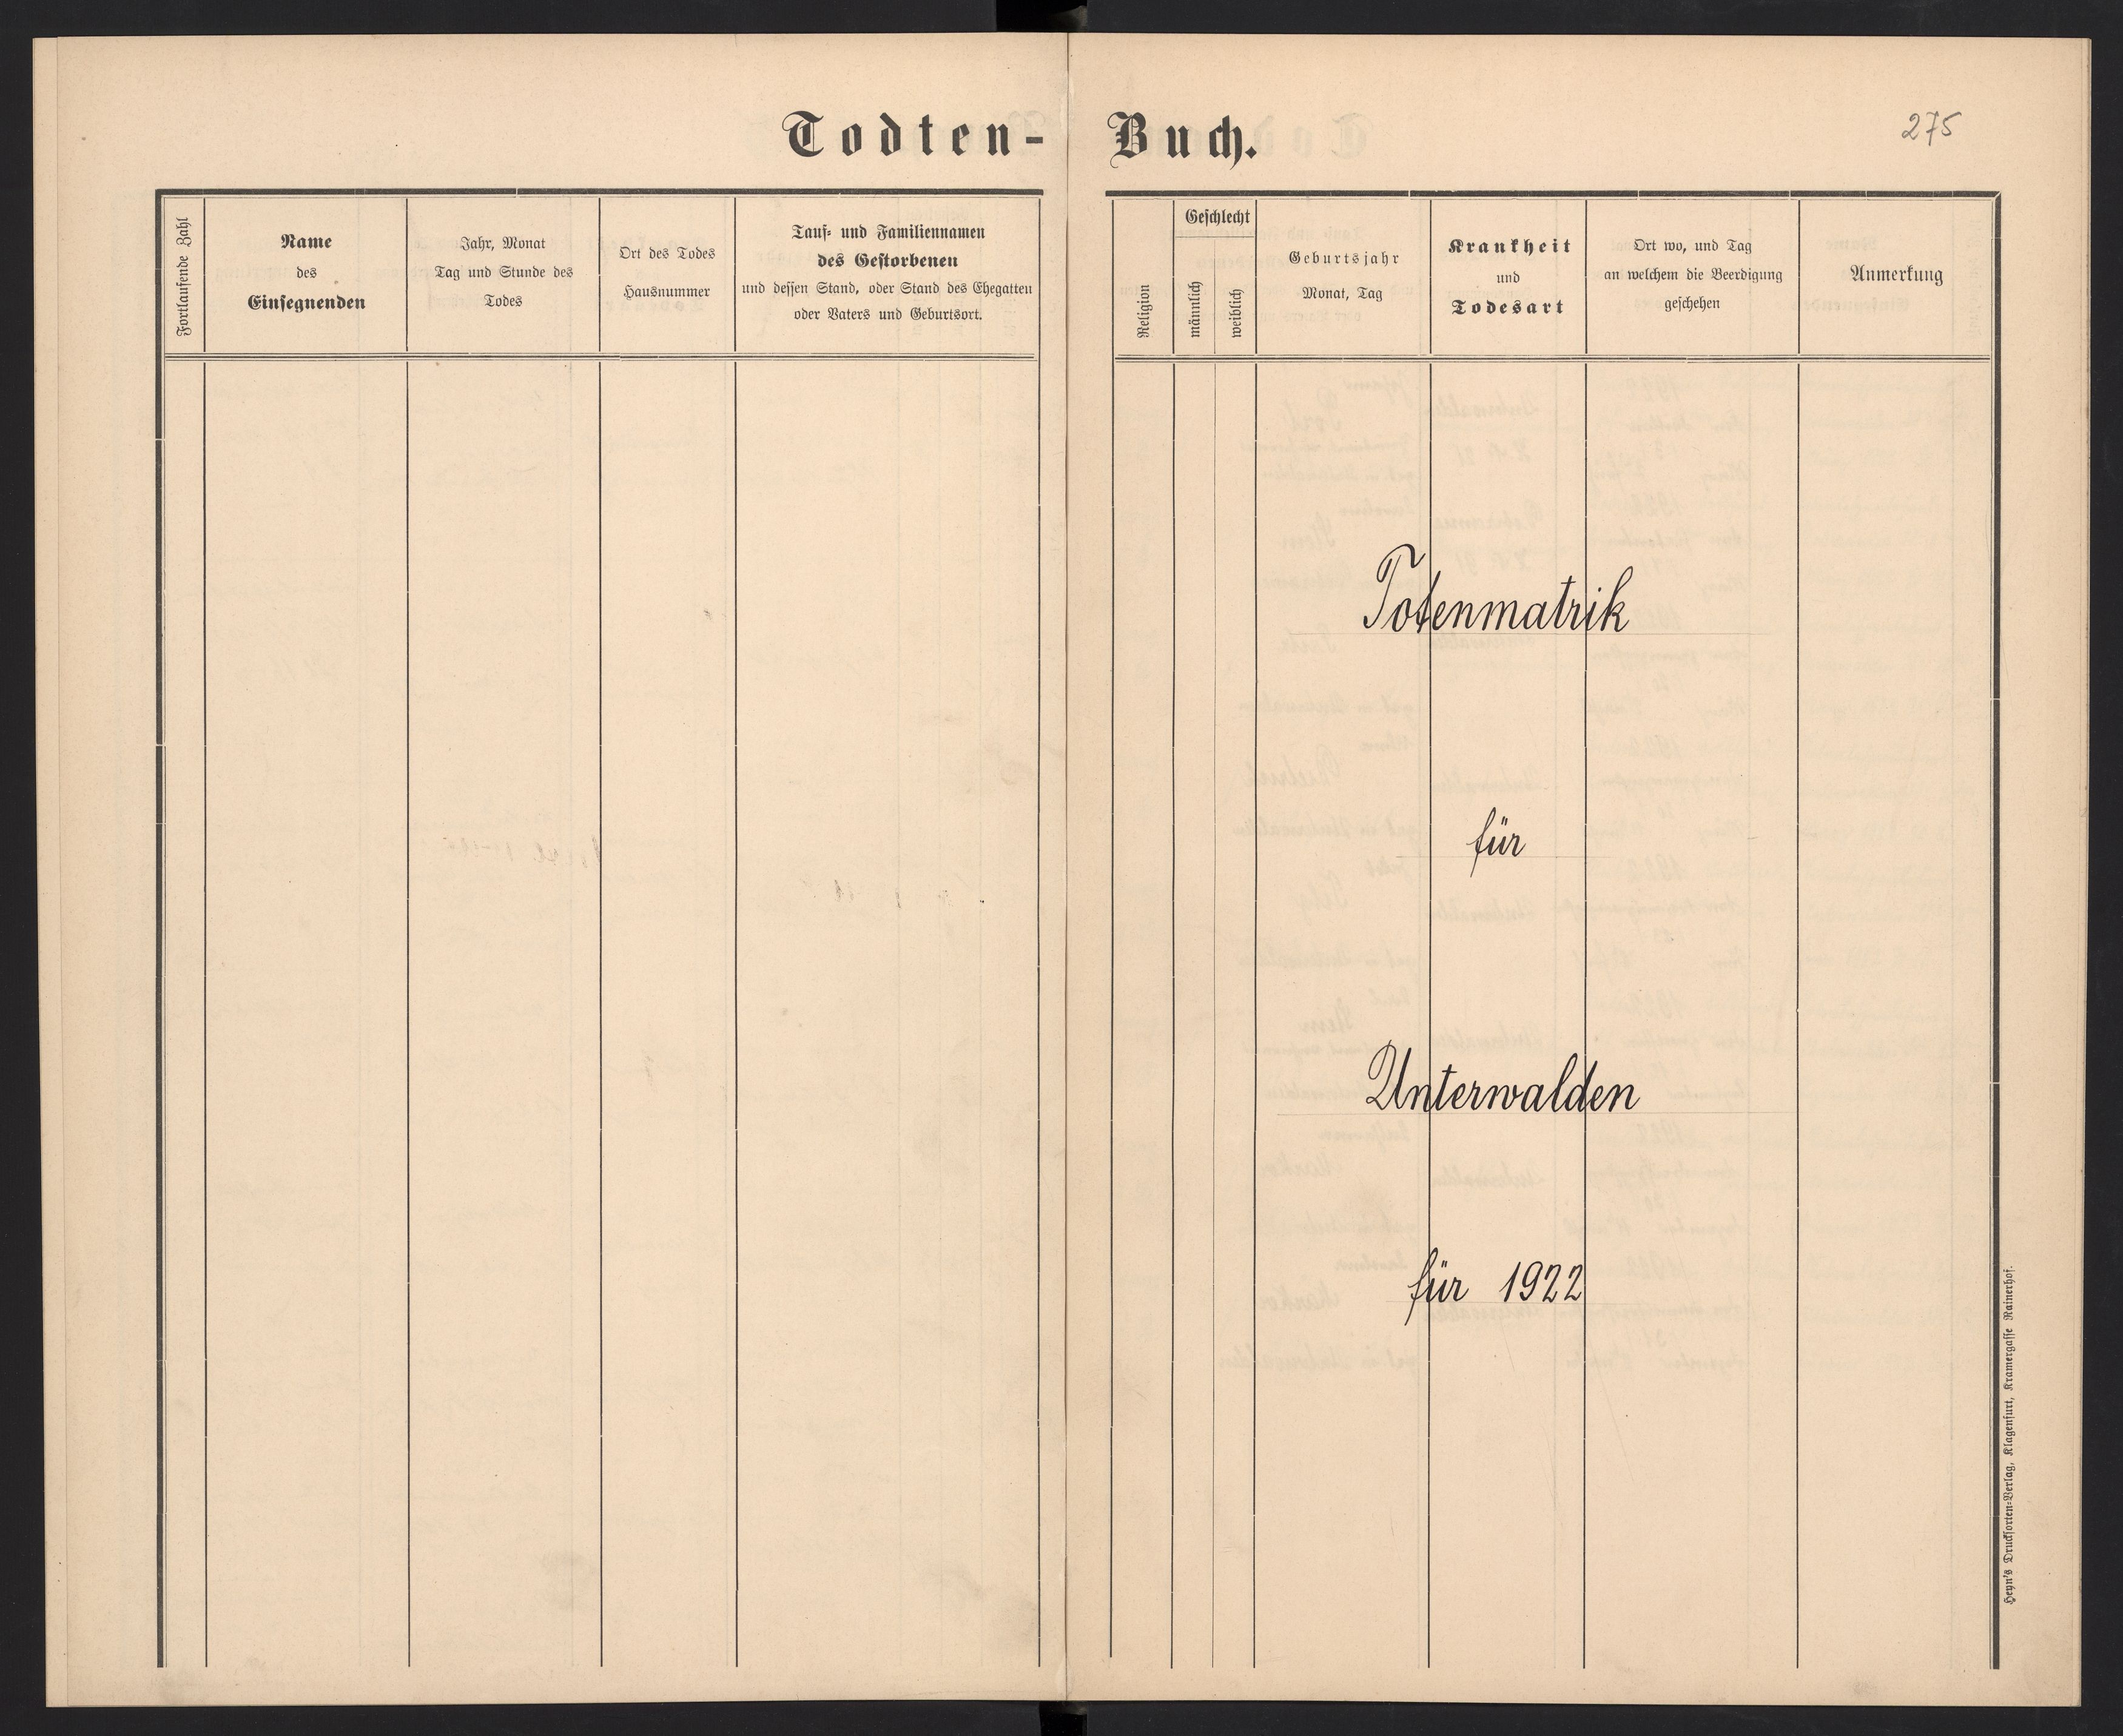 Todten-Buch.
275
Fortlaufende Zahl
Name
des
Einsegnenden
Jahr, Monat
Tag und Stunde des
Todes
Ort des Todes
Hausnummer
Tauf- und Familiennamen
des Gestorbenen
und dessen Stand, oder Stand des Ehegatten
oder Vaters und Geburtsort.
Religion
Geschlecht
männlich
weiblich
Geburtsjahr
Monat, Tag
Krankheit
und
Todesart
Ort wo, und Tag
an welchem die Beerdigung
geschehen
Anmerkung
Totenmatrik
für
Unterwalden
für 1922
Heyn's Drucksorten-Verlag, Klagenfurt, Kramergasse Rainerhof.